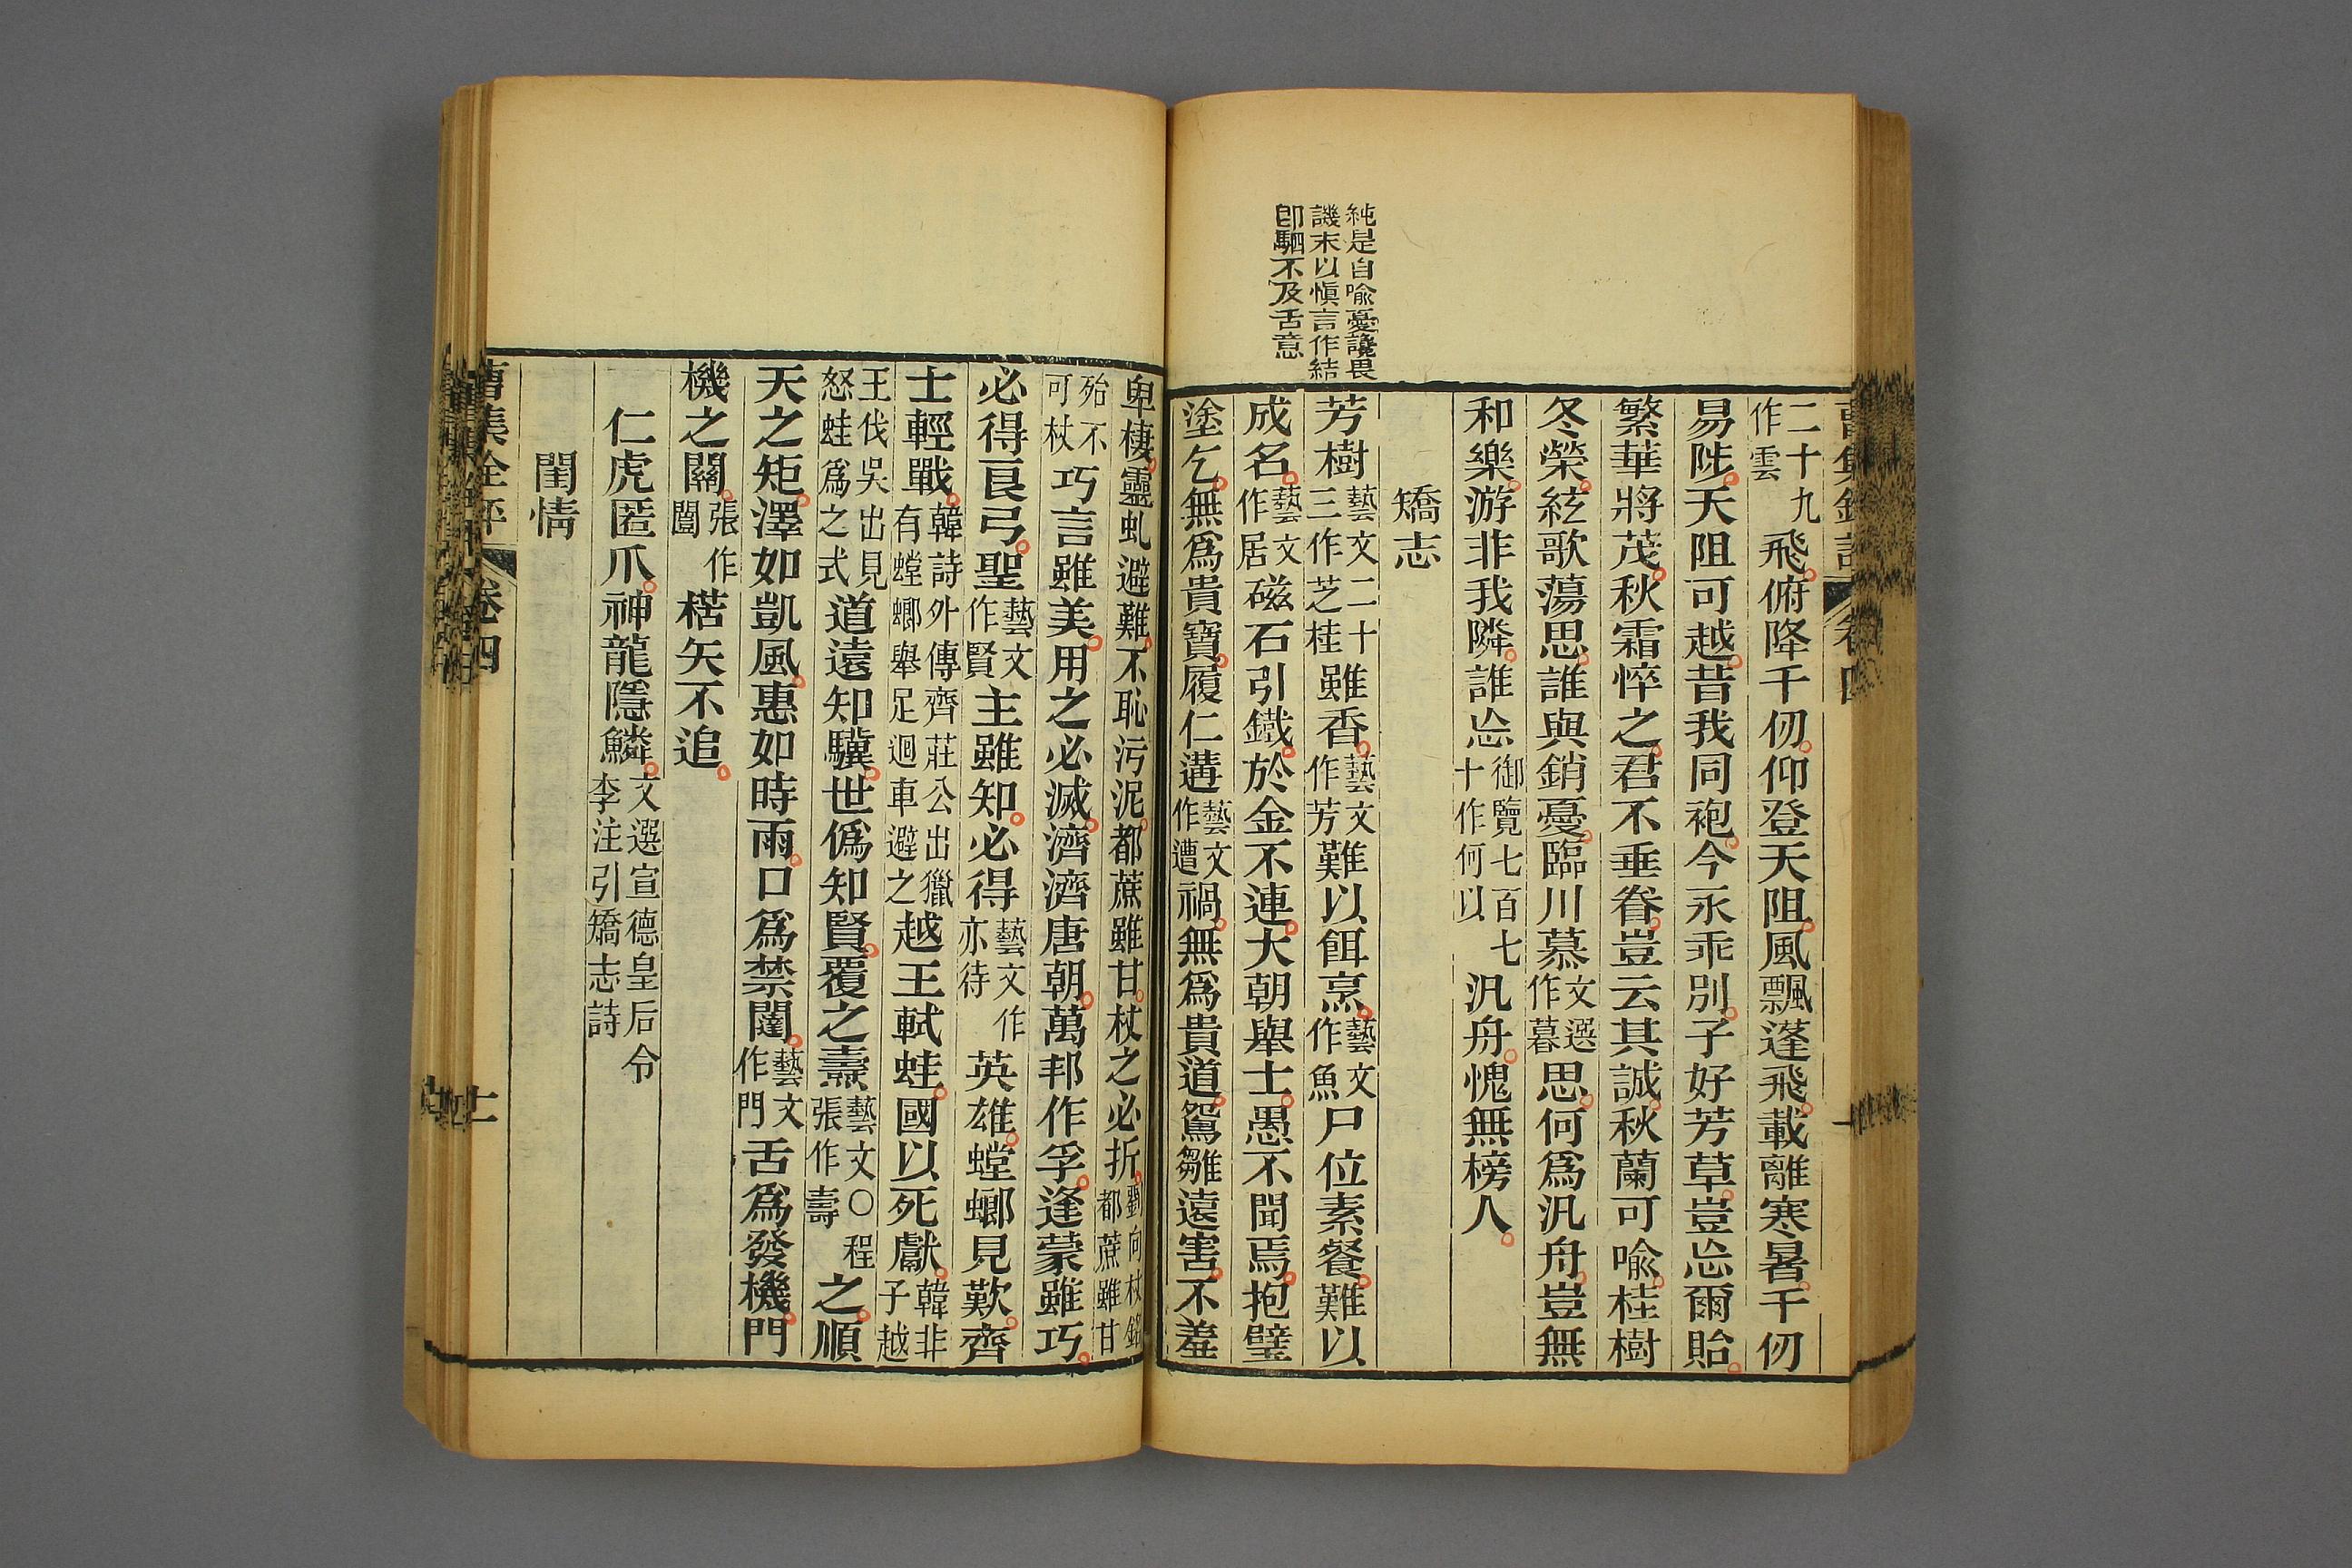 純是自喻憂讒畏
譏末以慎言作結
卽駟不及舌意
二十九作雲飛俯降千仞仰登天阻風飄蓬飛載離寒暑千仞
易陟天阻可越昔我同袍今永乖別子好芳草豈忘爾貽
繁華將茂秋霜悴之君不垂眷豈云其誠秋蘭可喻桂樹
冬榮絃歌蕩思誰與銷憂臨川慕文選作暮思何爲汎舟豈無
和樂游非我隣誰忘御覽七百七十作何以汎舟愧無榜人
矯志
芳樹藝文二十三作芝桂雖香藝文作芳難以餌烹藝文作魚尸位素餐難以
成名藝文作居磁石引鐵於金不連大朝舉士愚不聞焉抱璧
塗乞無爲貴寶履仁遘藝文作遭禍無爲貴道鴛雛遠害不羞
卑棲靈虬避難不恥污泥都蔗雖甘杖之必折劉向杖銘都蔗雖甘
殆不可杖巧言雖美用之必滅濟濟唐朝萬邦作孚逢蒙雖巧
必得良弓聖藝文作賢主雖知必得藝文作亦待英雄螳螂見歎齊
士輕戰韓詩外傳齊莊公出獵有螳螂舉足迴車避之越王軾蛙國以死獻韓非子越
王伐吳出見怒蛙爲之式道遠知驥世僞知賢覆之燾藝文○程張作壽之順
天之矩澤如凱風惠如時雨口爲禁闥藝文作門舌爲發機門
機之闢張作闓楛矢不追
仁虎匿爪神龍隱鱗文選宣德皇后令李注引矯志詩
閨情
曹集銓評 卷四 十一